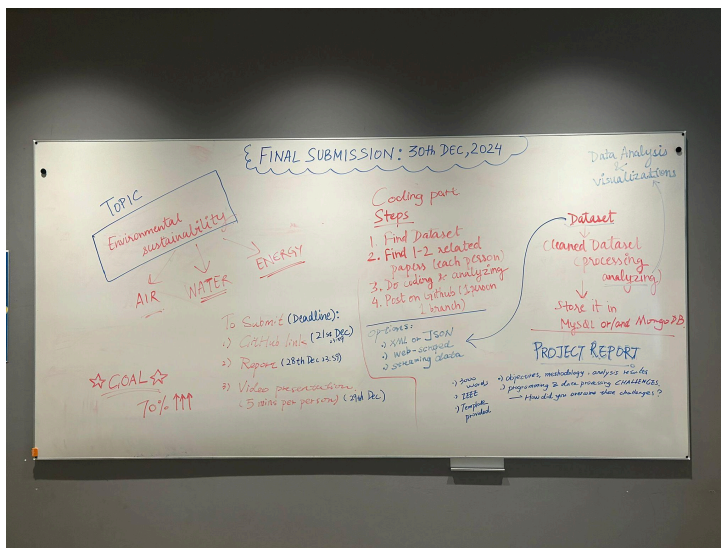 FINAL SUBMISSION: 30th DEC, 2024
TOPIC
Environmental
sustainability
AIR
WATER
ENERGY
☆ GOAL ☆
70% ↑↑↑
To Submit (Deadline):
1) GitHub link (21st Dec)
2) Report (28th Dec 23:59)
3) Video presentation
(5 mins per person) (29th Dec)
Coding part
Steps
1. Find Dataset
2. Find 1-2 related
papers (each person)
3. Do coding & analyzing
4. Post on GitHub (1 person
1 branch)
options:
1) XML or JSON
2) Web-scraped
3) streaming data
Data Analysis
&
visualizations
Dataset
cleaned Dataset
(processing
analyzing)
Store it in
MySQL or/and MongoDB
PROJECT REPORT
words
IEEE
Template
provided
objectives, methodology, analysis results
programming & data processing CHALLENGES
→ How did you overcome these challenges?